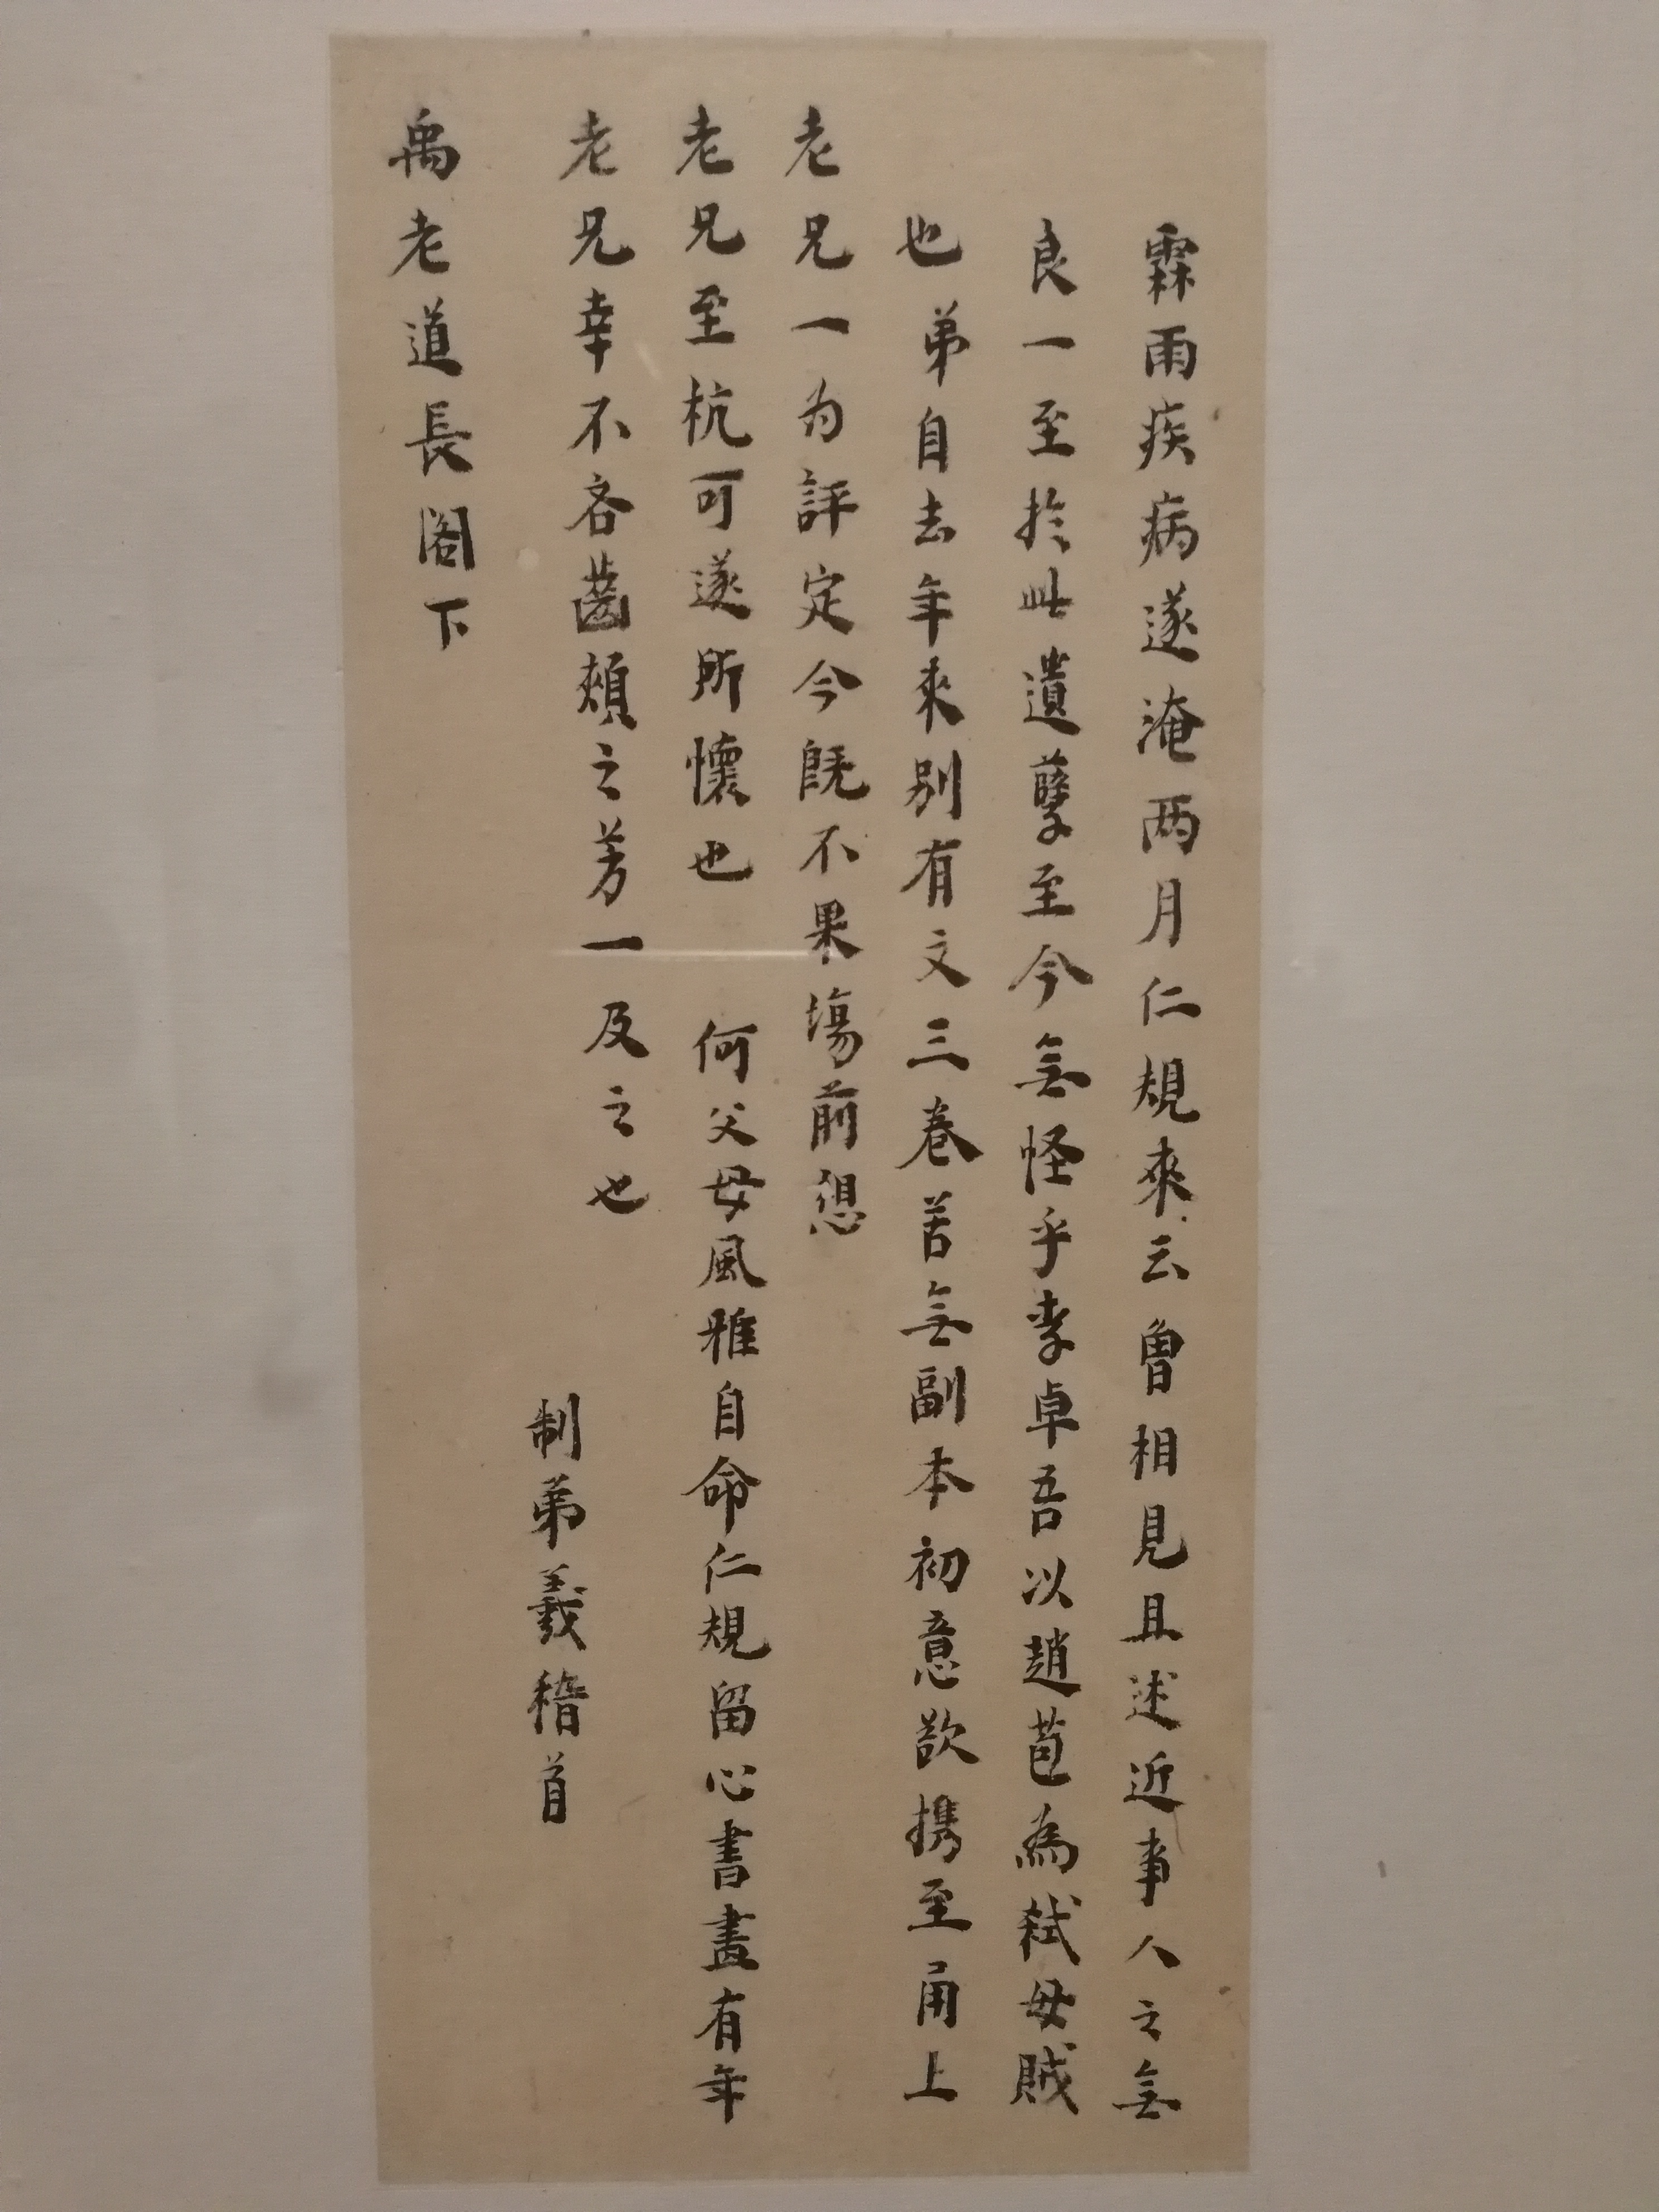 霖雨疾病遂淹两月仁規來云曾相見且述近事人之無
良一至於此遺孽至今無怪乎李卓吾以趙苞為弒母賊
也弟自去年來别有文三卷苦無副本初意欲携至甬上
老兄一为評定今既不果塲前想
老兄至杭可遂所懷也 何父母風雅自命仁規留心書畫有年
老兄幸不吝齒頰之芳一及之也
制弟羲稽首
禹老道長閣下